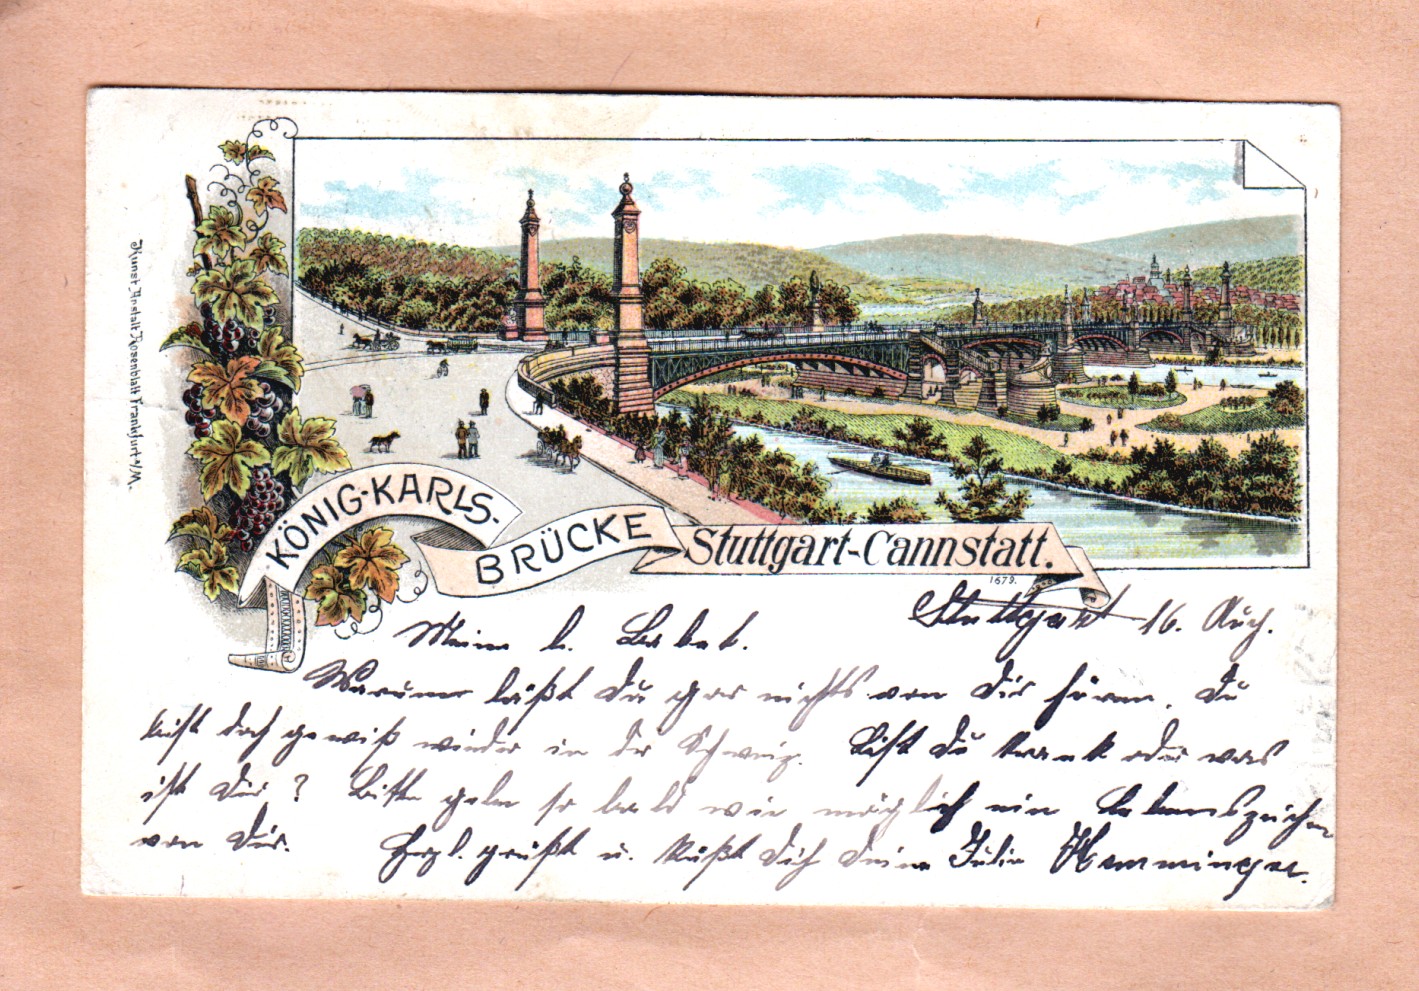 Kunst-Anstalt Rosenblatt Frankfurt a/M.
KÖNIG-KARLS-
BRÜCKE
Stuttgart-Cannstatt.
1679.
Stuttgart 16. Aug.
Meine l.
Warum läßt Du gar nichts von Dir hören. Du
bist doch gewiß wieder in der Schweiz. Bist Du krank oder was
ist Dir? Bitte gebe so bald wie möglich ein Lebenszeichen
von Dir. Herzl. grüßt u. küßt Dich Deine Julie Hemminger.